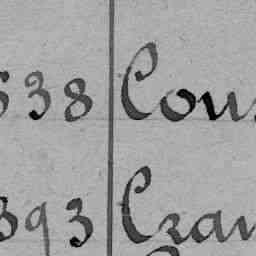 538 Cous
393 Cran